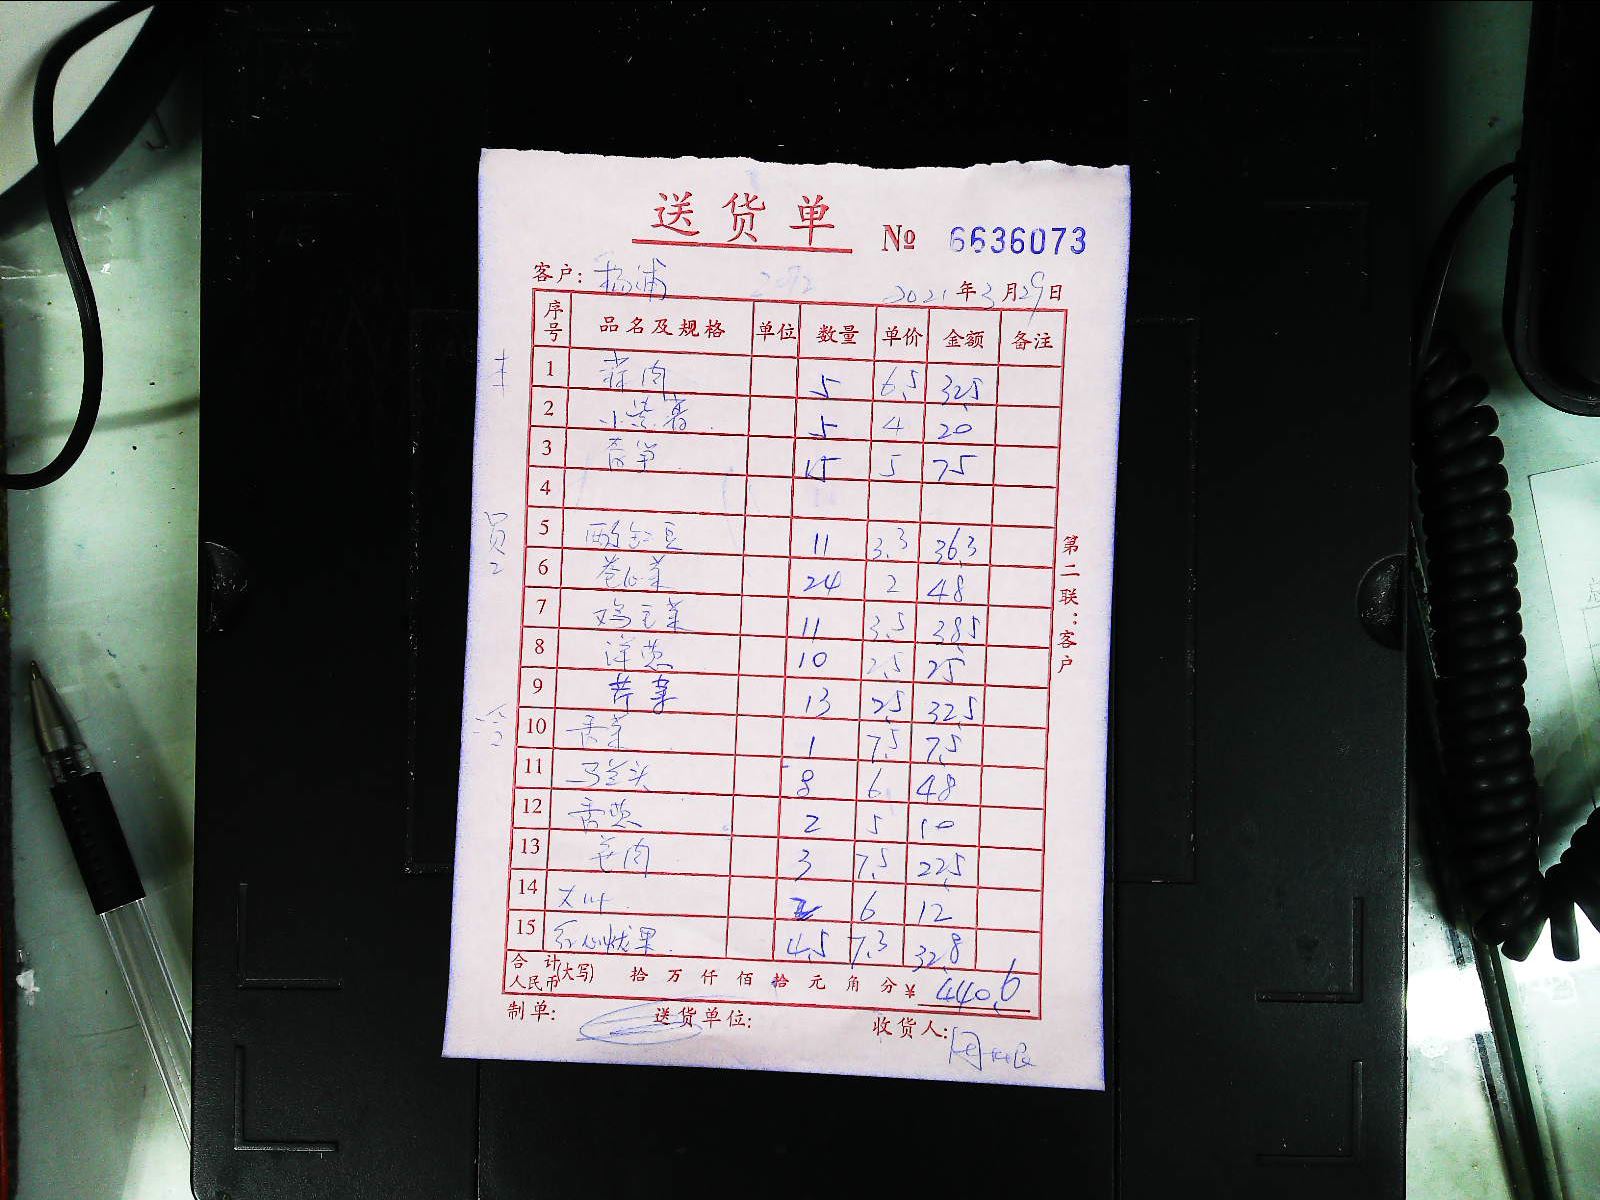 送货单 № 6636073
客户: 杨浦 2021年3月29日
序号 品名及规格 单位 数量 单价 金额 备注
1 蒜肉 5 6.5 32.5
2 小紫薯 5 4 20
3 春笋 15 5 75
4
5 11 3.3 36.3
6 卷心菜 24 2 48
7 鸡毛菜 11 3.5 38.5
8 洋葱 10 2.5 25
9 芹菜 13 2.5 32.5
10 香菜 1 7.5 7.5
11 马兰头 8 6 48
12 香葱 2 5 10
13 姜肉 3 7.5 22.5
14 大叶 2 6 12
15 红心火龙果 4.5 7.3 32.8
合计人民币(大写) 拾万仟佰拾元角分 ¥ 440.6
制单: 送货单位: 收货人:
第二联:客户